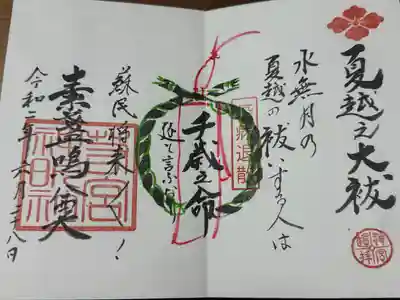 夏越之大祓
水無月の
夏越の祓いする人は
千歳之命
延と言ふなり
蘇民将来〱！
素盞嗚尊
令和二年六月二十八日
疫病退散